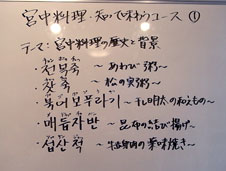 宮中料理・知って味わうコース ①
テーマ:宮中料理の歴史と背景
・전복죽 ~あわび粥~
・잣죽 ~松の実粥~
・북어보푸라기 ~干し明太の和えもの~
・매듭자반 ~昆布の結び揚げ~
・섭산적 ~牛肉の薬味焼き~